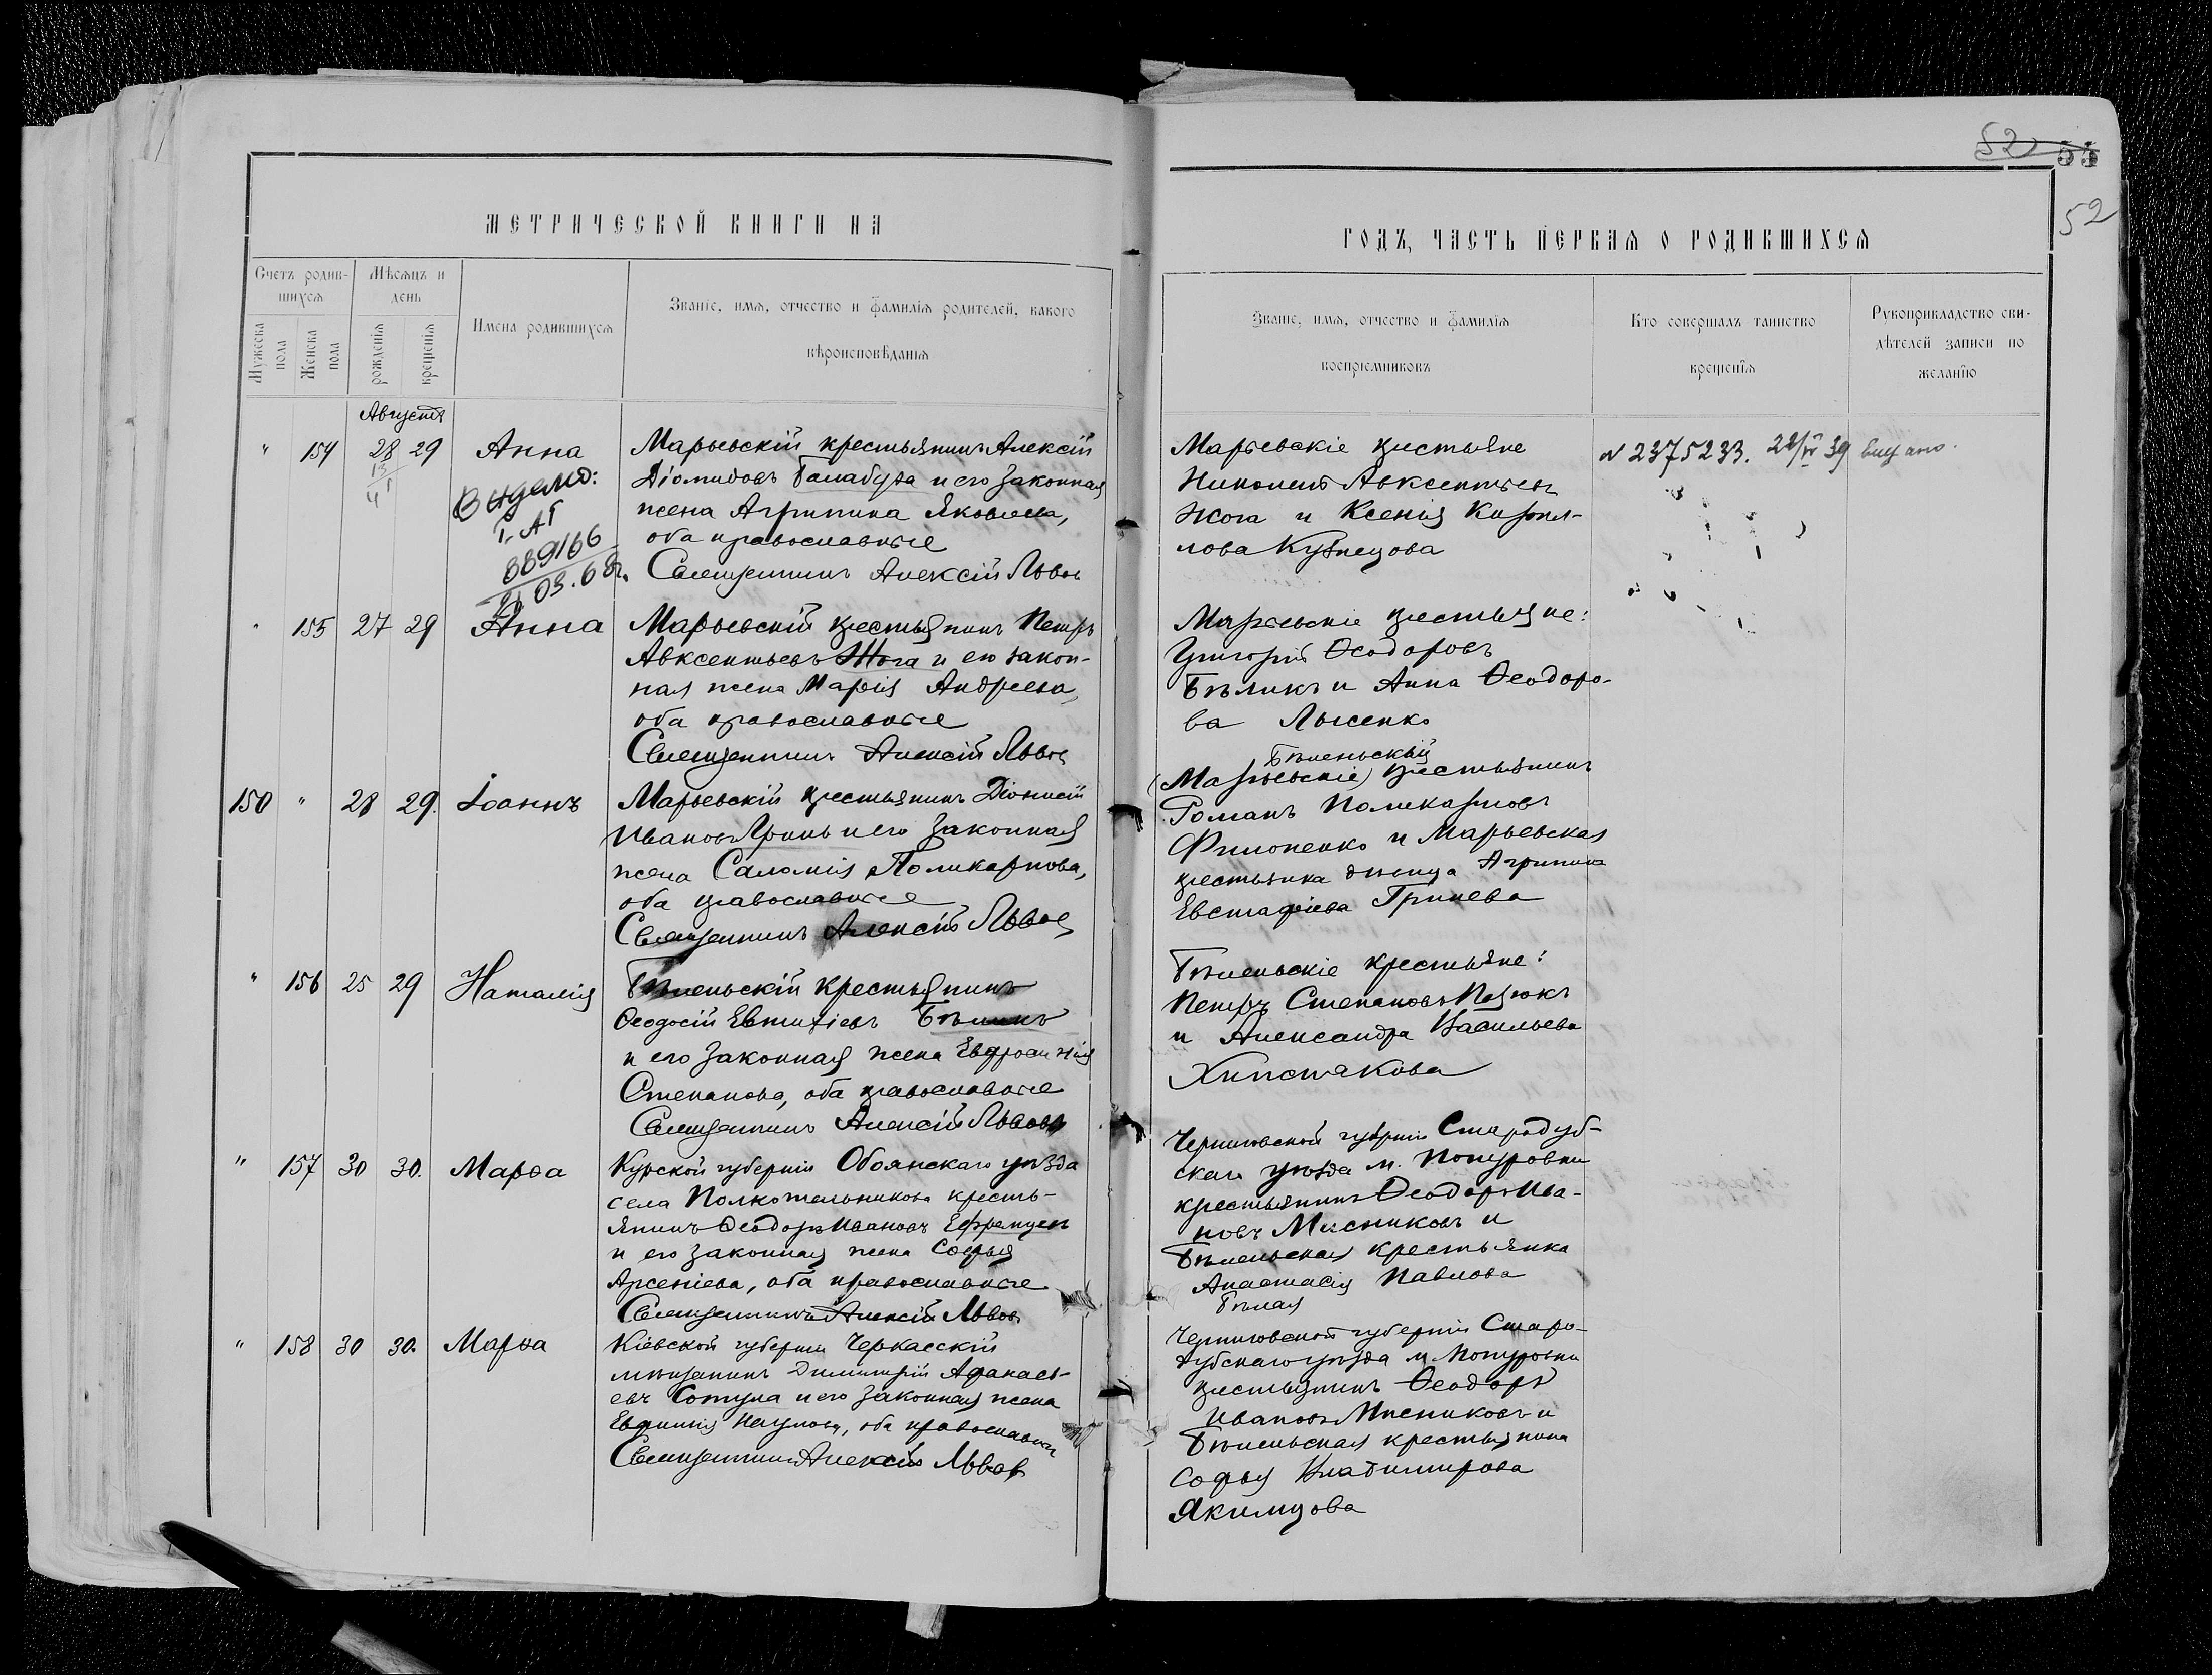 52 53
52
МЕТРИЧЕСКОЙ КНИГИ НА
ГОДЪ, ЧАСТЬ ПЕРВАЯ О РОДИВШИХСЯ
Счетъ родив-
шихся
Мужеска
пола
Женска
пола
Мѣсяцъ и
день
рожденія
крещенія
Имена родившихся
Званіе, имя, отчество и фамилія родителей, какого
вѣроисповѣданія
Званіе, имя, отчество и фамилія
воспріемниковъ
Кто совершалъ таинство
крещенія
Рукоприкладство сви-
дѣтелей записи по
желанію
Августа
" 154 28 29 Анна
Выдано:
889166
03.68г.
Марьевскій крестьянинъ Алексій
Діомидовъ Балабуха и его законная
жена Агрипина Яковлева,
оба православные
Священникъ Алексій Львов
Марьевскіе крестьяне
Авксентьевъ
Жога и Ксенія Кирил-
лова Кузнецова
N 2375233. 39 выдано.
" 155 27 29 Анна
Марьевскій крестьянинъ Петръ
Авксентьевъ Жога и его закон-
ная жена Марія Андреева,
оба православные
Священникъ Алексій Львов
Марьевскіе крестьяне:
Григорій Ѳеодоровъ
Бѣликъ и Анна Ѳеодоро-
ва Лысенко
150 " 28 29. Іоаннъ
Марьевскій крестьянинъ Діонисій
Ивановъ Гринь и его законная
жена Саломія Поликарпова,
оба православные
Священникъ Алексій Львов
Бѣленьскій
(Марьевскіе) крестьянинъ
Романъ Поликарповъ
Филоненко и Марьевская
крестьянка дѣвица Агрипина
Евстафіева Гринева
" 156 25 29 Наталія
Бѣленьскій крестьянинъ
Ѳеодосій Евтихіевъ Бѣликъ
и его законная жена Евфросинія
Степанова, оба православные
Священникъ Алексій Львовъ
Бѣленьскіе крестьяне:
Петръ Степановъ Пазюкъ
и Александра Васильева
Хипстакова
" 157 30 30. Марѳа
Курской губерніи Обоянскаго уѣзда
села Полкотельникова кресть-
янинъ Ѳеодоръ Ивановъ Ефремцев
и его законная жена Софья
Арсеніева, оба православные
Священникъ Алексій Львов
Черниговской губерніи Стародуб-
скаго уѣзда м. Понуровки
крестьянинъ Ѳеодоръ Ива-
новъ Мисниковъ и
Бѣленьская крестьянка
Анастасія Павлова
Бѣлая
" 158 30 30. Марѳа
Кіевской губерніи Черкасскій
мѣщанинъ Димитрій Афанась-
евъ Сотула и его законная жена
Евфимія Наумова, оба православны
Священникъ Алексій Львов
Черниговской губерніи Старо-
дубскаго уѣзда м. Понуровки
крестьянинъ Ѳеодоръ
Ивановъ Мисниковъ и
Бѣленьская крестьянка
Софья Владимирова
Якимцова